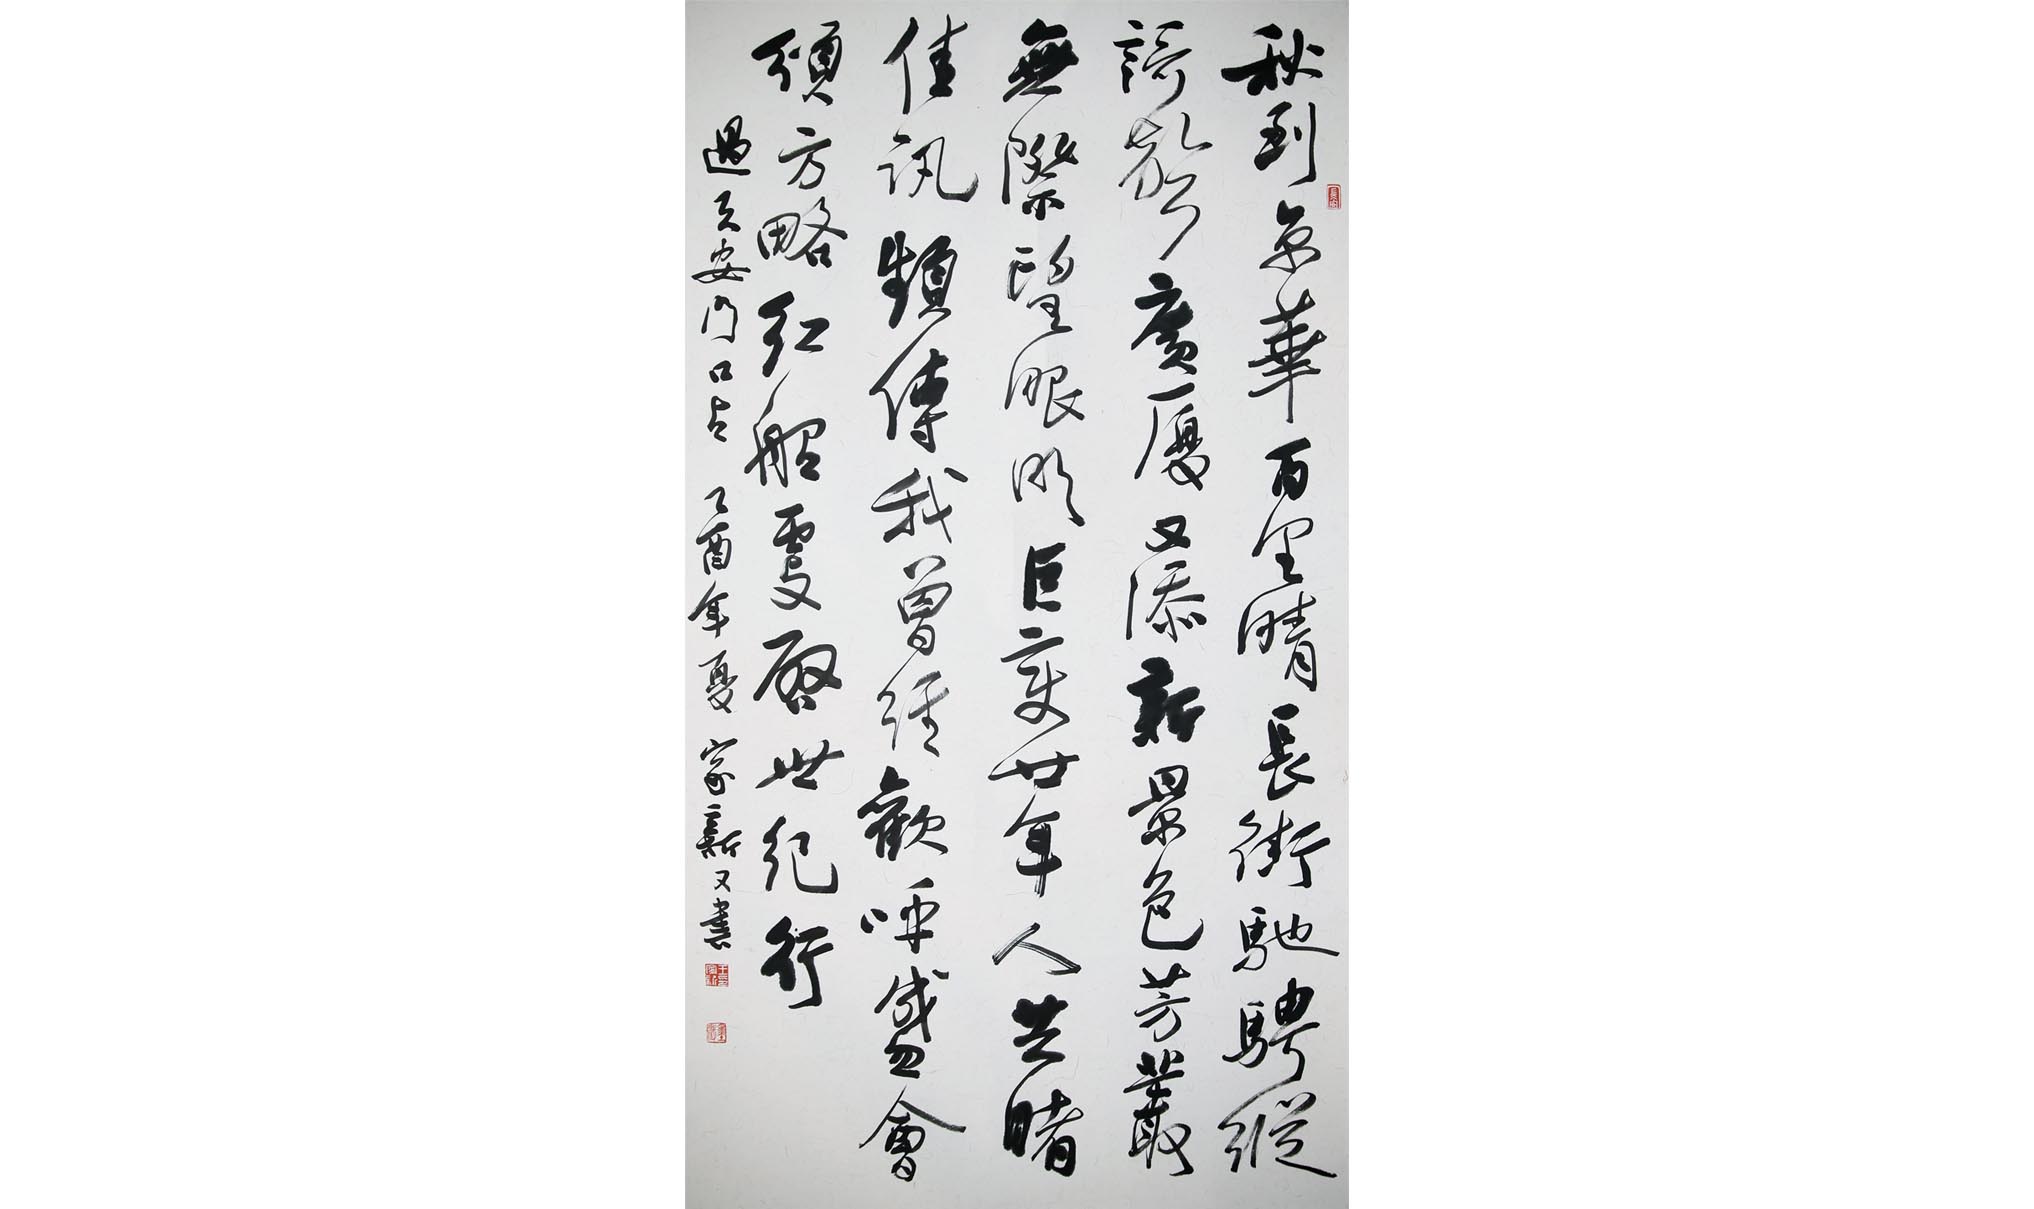 秋到京華百里晴長街馳騁縱
廣廈又添新景色芳叢
無際望眼明巨變廿年人共睹
佳訊頻傳我曾經歡呼盛會
頌方略紅船啟世紀行
過天安門口占 乙酉年夏 家新又書